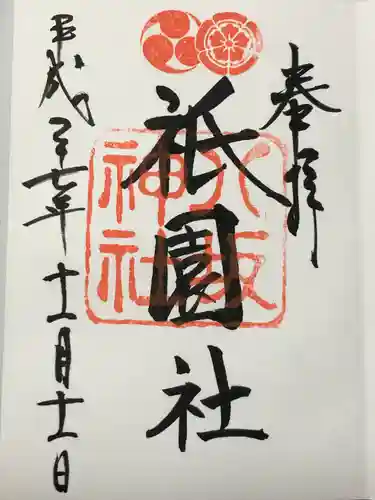 奉拝
祇園社
八坂神社
平成二十七年十一月十一日